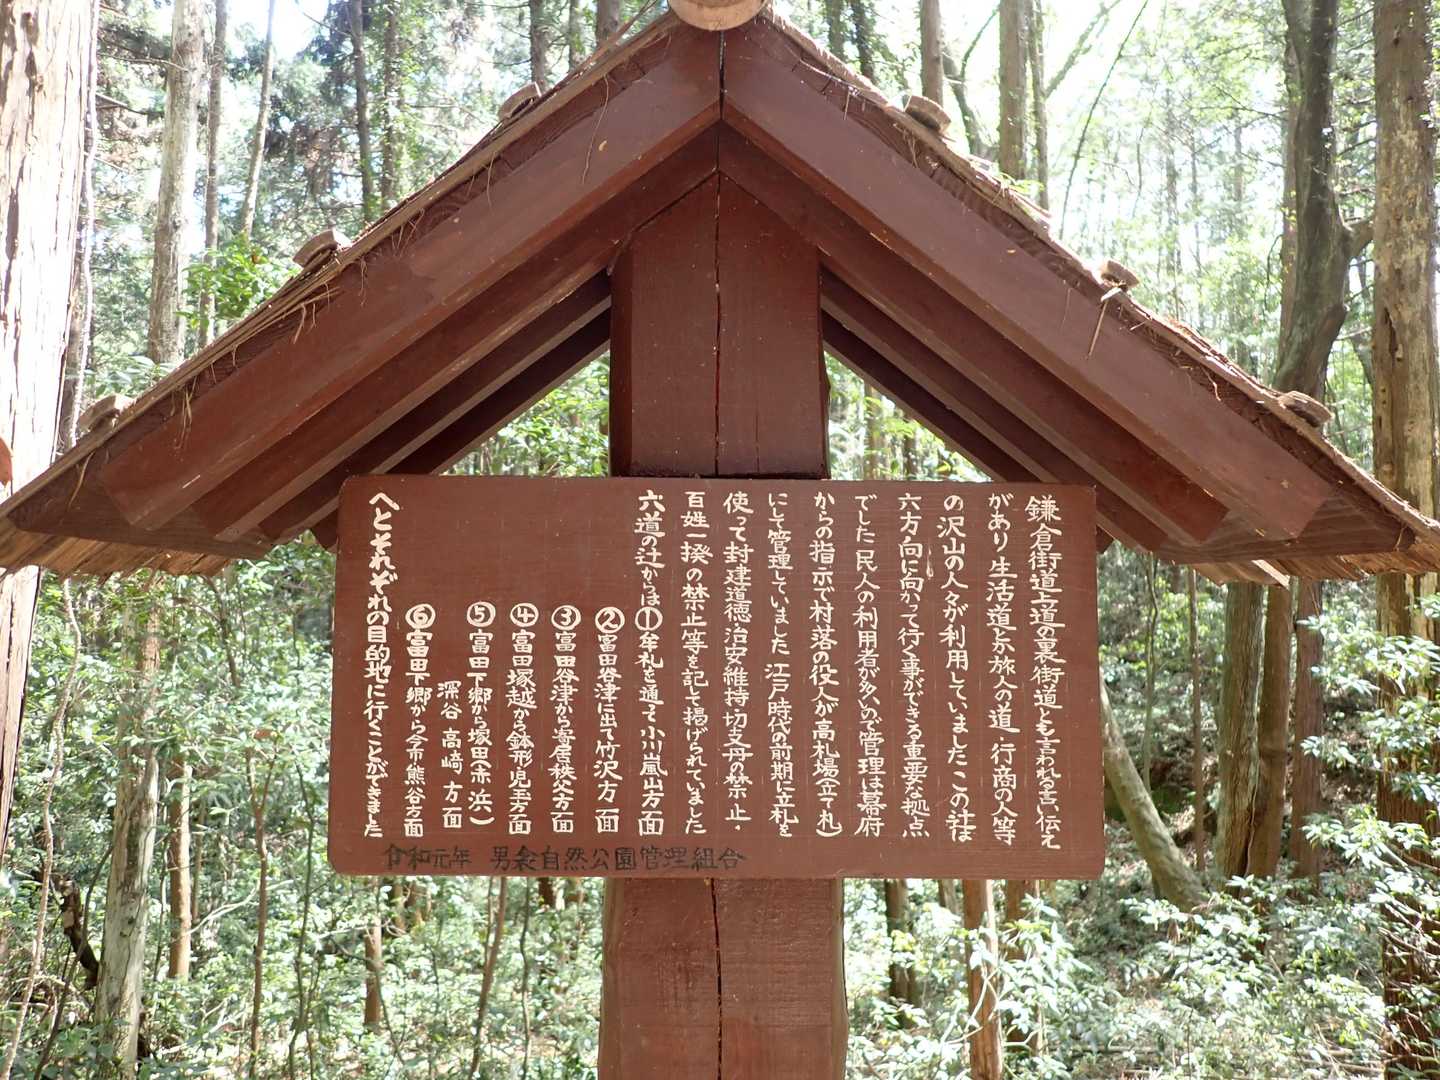 鎌倉街道上道の裏街道とも言われる言い伝え
があり生活道とか旅人の道・行商の人等
の沢山の人々が利用していましたこの辻は
六方向に向かって行く事ができる重要な拠点
でした民人の利用者が多いので管理は幕府
からの指示で村落の役人が高札場(立て札)
にして管理していました江戸時代の前期に立札を
使って封建道徳治安維持切支丹の禁止・
百姓一揆の禁止等を記して掲げられていました
六道の辻からは①牟札を通って小川嵐山方面
②富田谷津に出て竹沢方面
③富田谷津から寄居秩父方面
④富田塚越から鉢形児玉方面
⑤富田下郷から塚田(赤浜)
深谷高崎方面
⑥富田下郷から今市熊谷方面
へとそれぞれの目的地に行くことができました
令和元年 男衾自然公園管理組合